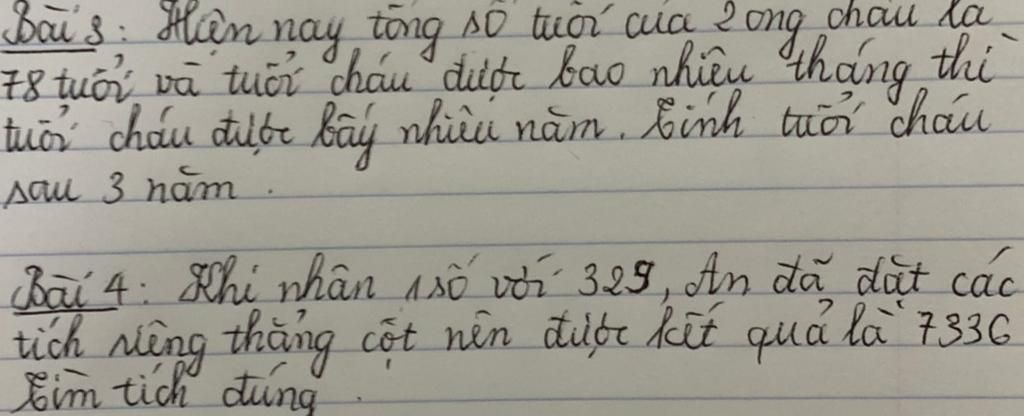 Bài 3: Hiện nay tổng số tuổi của 2 ông cháu là
78 tuổi và tuổi cháu được bao nhiêu tháng thì
tuổi cháu được bấy nhiêu năm. Tính tuổi cháu
sau 3 năm.
Bài 4: Khi nhân 1 số với 329, An đã đặt các
tích riêng thẳng cột nên được kết quả là 7336
Tìm tích đúng.